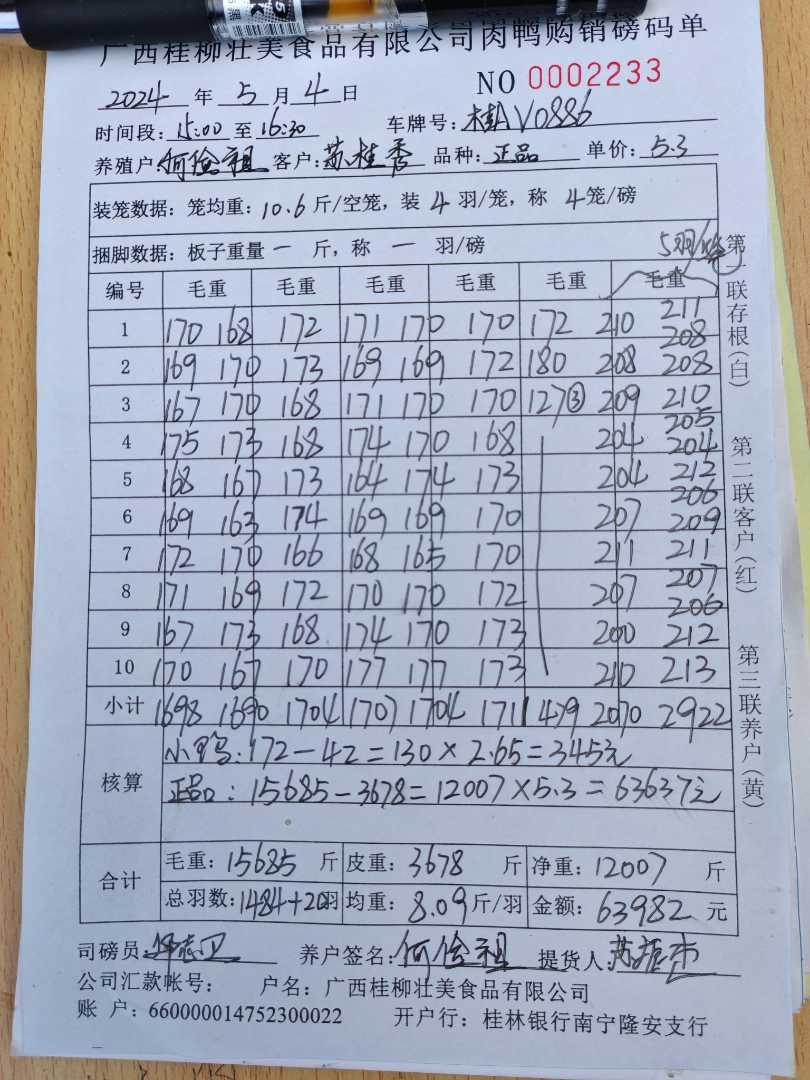 广西桂柳壮美食品有限公司肉鸭购销磅码单
NO 0002233
2024 年 5 月 4 日
时间段: 15:00 至 16:30 车牌号: 桂AV0886
养殖户: 何俭祖 客户: 苏桂秀 品种: 正品 单价: 5.3
装笼数据: 笼均重: 10.6 斤/空笼, 装 4 羽/笼, 称 4 笼/磅
捆脚数据: 板子重量 一 斤, 称 一 羽/磅 5羽/笼
编号 毛重 毛重 毛重 毛重 毛重 毛重
1 170 168 172 171 170 170 172 210 211
208
2 169 170 173 169 169 172 180 208 208
3 167 170 168 171 170 170 127③ 209 210
205
4 175 173 168 174 170 168 204 204
5 168 167 173 164 174 173 204 212
206
6 169 163 174 169 169 170 207 209
7 172 170 166 168 165 170 211 211
207
8 171 169 172 170 170 172 207 206
9 167 173 168 174 170 173 200 212
10 170 167 170 177 177 173 210 213
小计 1698 1690 1704 1707 1704 1711 479 2070 2922
核算
小鸭: 172-42=130×2.65=345元
正品: 15685-3678=12007×5.3=63637元
合计
毛重: 15685 斤 皮重: 3678 斤 净重: 12007 斤
总羽数: 1484+20羽 均重: 8.09 斤/羽 金额: 63982 元
司磅员: 养户签名: 何俭祖 提货人:
公司汇款帐号: 户名: 广西桂柳壮美食品有限公司
账 户: 660000014752300022 开户行: 桂林银行南宁隆安支行
第一联存根(白)
第二联客户(红)
第三联养户(黄)